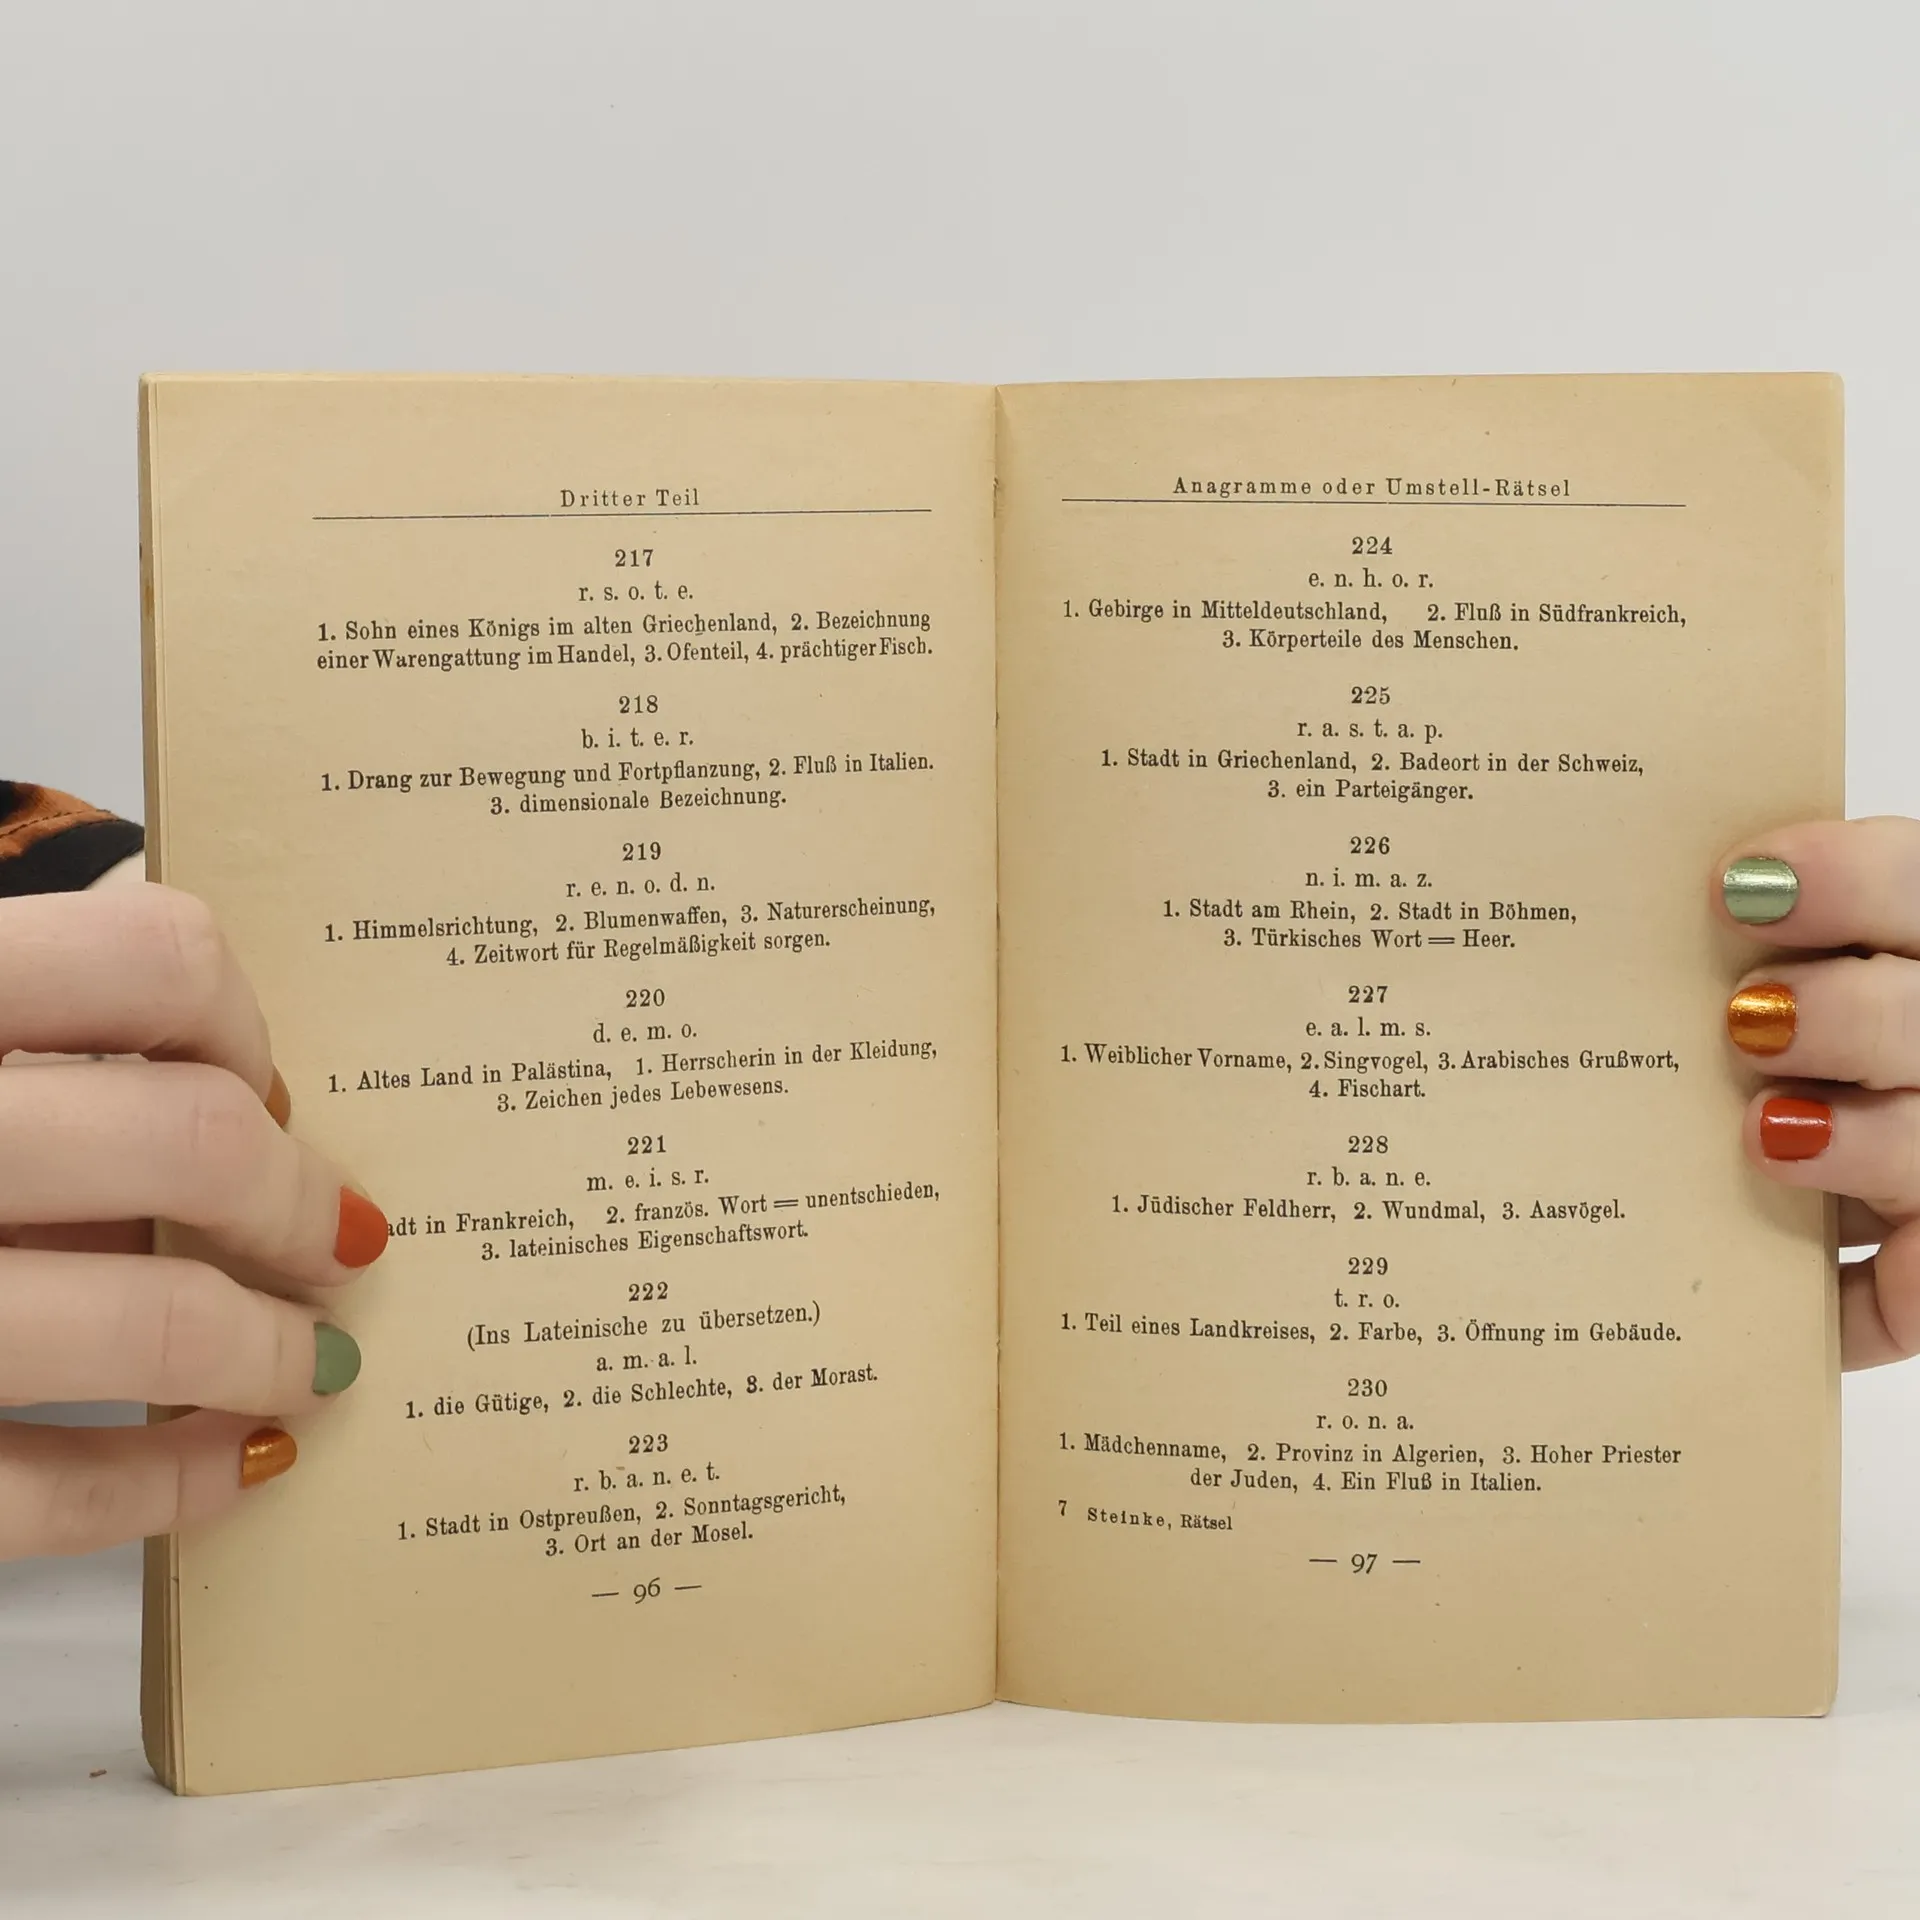 Dritter Teil
217
r. s. o. t. e.
1. Sohn eines Königs im alten Griechenland, 2. Bezeichnung
einer Warengattung im Handel, 3. Ofenteil, 4. prächtiger Fisch.
218
b. i. t. e. r.
1. Drang zur Bewegung und Fortpflanzung, 2. Fluß in Italien.
3. dimensionale Bezeichnung.
219
r. e. n. o. d. n.
1. Himmelsrichtung, 2. Blumenwaffen, 3. Naturerscheinung,
4. Zeitwort für Regelmäßigkeit sorgen.
220
d. e. m. o.
1. Altes Land in Palästina, 1. Herrscherin in der Kleidung,
3. Zeichen jedes Lebewesens.
221
m. e. i. s. r.
adt in Frankreich, 2. französ. Wort = unentschieden,
3. lateinisches Eigenschaftswort.
222
(Ins Lateinische zu übersetzen.)
a. m. a. l.
1. die Gütige, 2. die Schlechte, 3. der Morast.
223
r. b. a. n. e. t.
1. Stadt in Ostpreußen, 2. Sonntagsgericht,
3. Ort an der Mosel.
— 96 —
Anagramme oder Umstell-Rätsel
224
e. n. h. o. r.
1. Gebirge in Mitteldeutschland, 2. Fluß in Südfrankreich,
3. Körperteile des Menschen.
225
r. a. s. t. a. p.
1. Stadt in Griechenland, 2. Badeort in der Schweiz,
3. ein Parteigänger.
226
n. i. m. a. z.
1. Stadt am Rhein, 2. Stadt in Böhmen,
3. Türkisches Wort = Heer.
227
e. a. l. m. s.
1. Weiblicher Vorname, 2. Singvogel, 3. Arabisches Grußwort,
4. Fischart.
228
r. b. a. n. e.
1. Jüdischer Feldherr, 2. Wundmal, 3. Aasvögel.
229
t. r. o.
1. Teil eines Landkreises, 2. Farbe, 3. Öffnung im Gebäude.
230
r. o. n. a.
1. Mädchenname, 2. Provinz in Algerien, 3. Hoher Priester
der Juden, 4. Ein Fluß in Italien.
7 Steinke, Rätsel
— 97 —